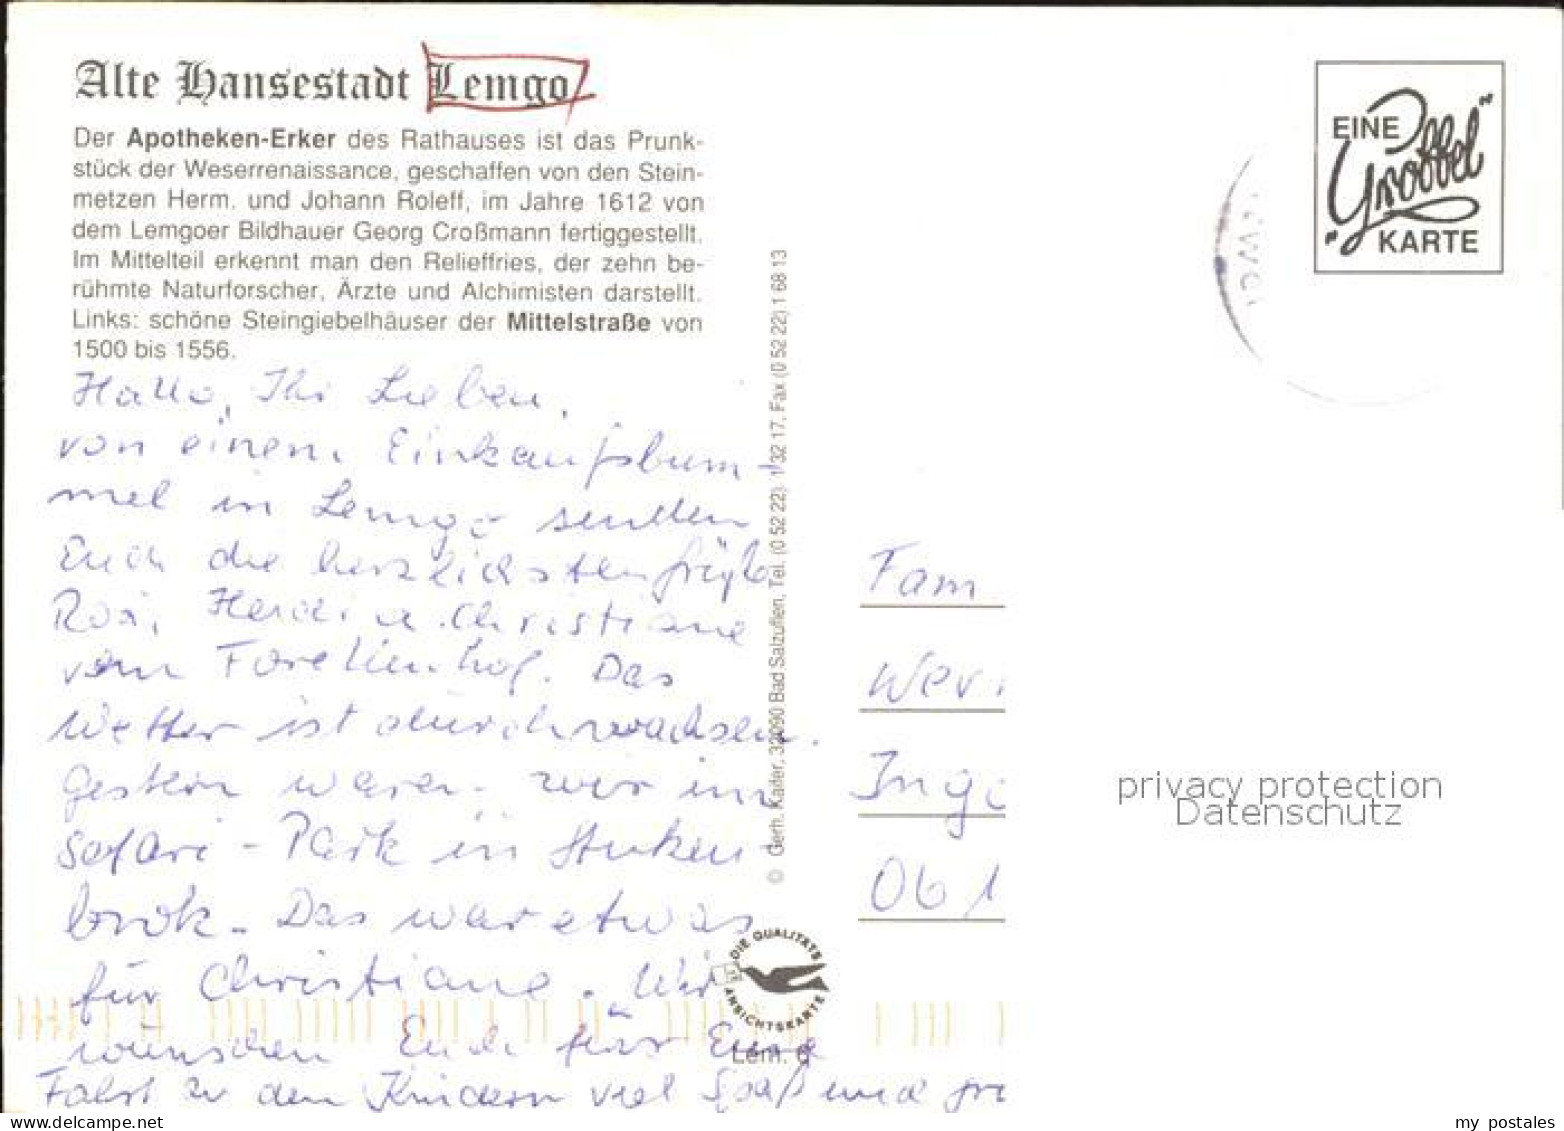 Alte Hansestadt Lemgo
Der Apotheken-Erker des Rathauses ist das Prunk-
stück der Weserrenaissance, geschaffen von den Stein-
metzen Herm. und Johann Roleff, im Jahre 1612 von
dem Lemgoer Bildhauer Georg Croßmann fertiggestellt.
Im Mittelteil erkennt man den Relieffries, der zehn be-
rühmte Naturforscher, Ärzte und Alchimisten darstellt.
Links: schöne Steingiebelhäuser der Mittelstraße von
1500 bis 1556.
Hallo, Ihr Lieben,
von einem Einkaufsbum-
mel in Lemgo senden
Euch die herzlichsten Grüße
Heidi u. Christiane
vom Forellenhof. Das
Wetter ist durchwachsen.
Gestern waren wir im
Safari-Park in Stuken
brok. Das war etwas
für Christiane. Wir
wünschen Euch für Eure
Fahrt zu den Kindern viel Spaß und
© Gerh. Kaifer, 32090 Bad Salzuflen, Tel. (0 52 22) 1 32 17, Fax (0 52 22) 1 68 13
DIE QUALITÄTS
ANSICHTSKARTE
Lem. 6
EINE
"Grobbel"
KARTE
Fam
Wer
Ingo
06 1
privacy protection
Datenschutz
DELCAMPE.NET
my_postales